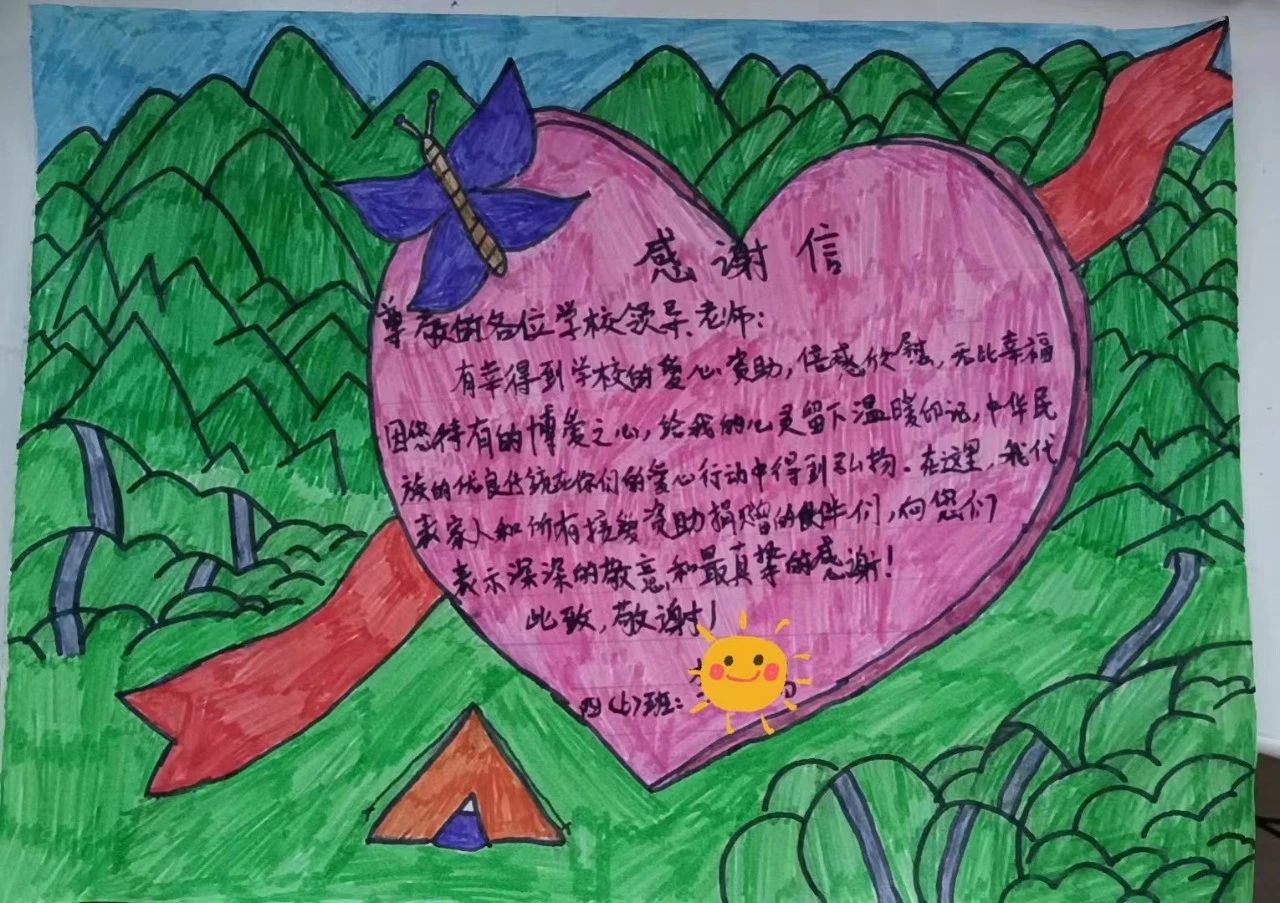 感谢信
尊敬的各位学校领导、老师：
有幸得到学校的爱心资助，倍感欣慰，无比幸福
因您特有的博爱之心，给我的心灵留下温暖印记，中华民
族的优良传统在你们的爱心行动中得到弘扬。在这里，我代
表家人和所有接受资助捐赠的伙伴们，向您们
表示深深的敬意和最真挚的感谢！
此致，敬谢！
四(1)班：